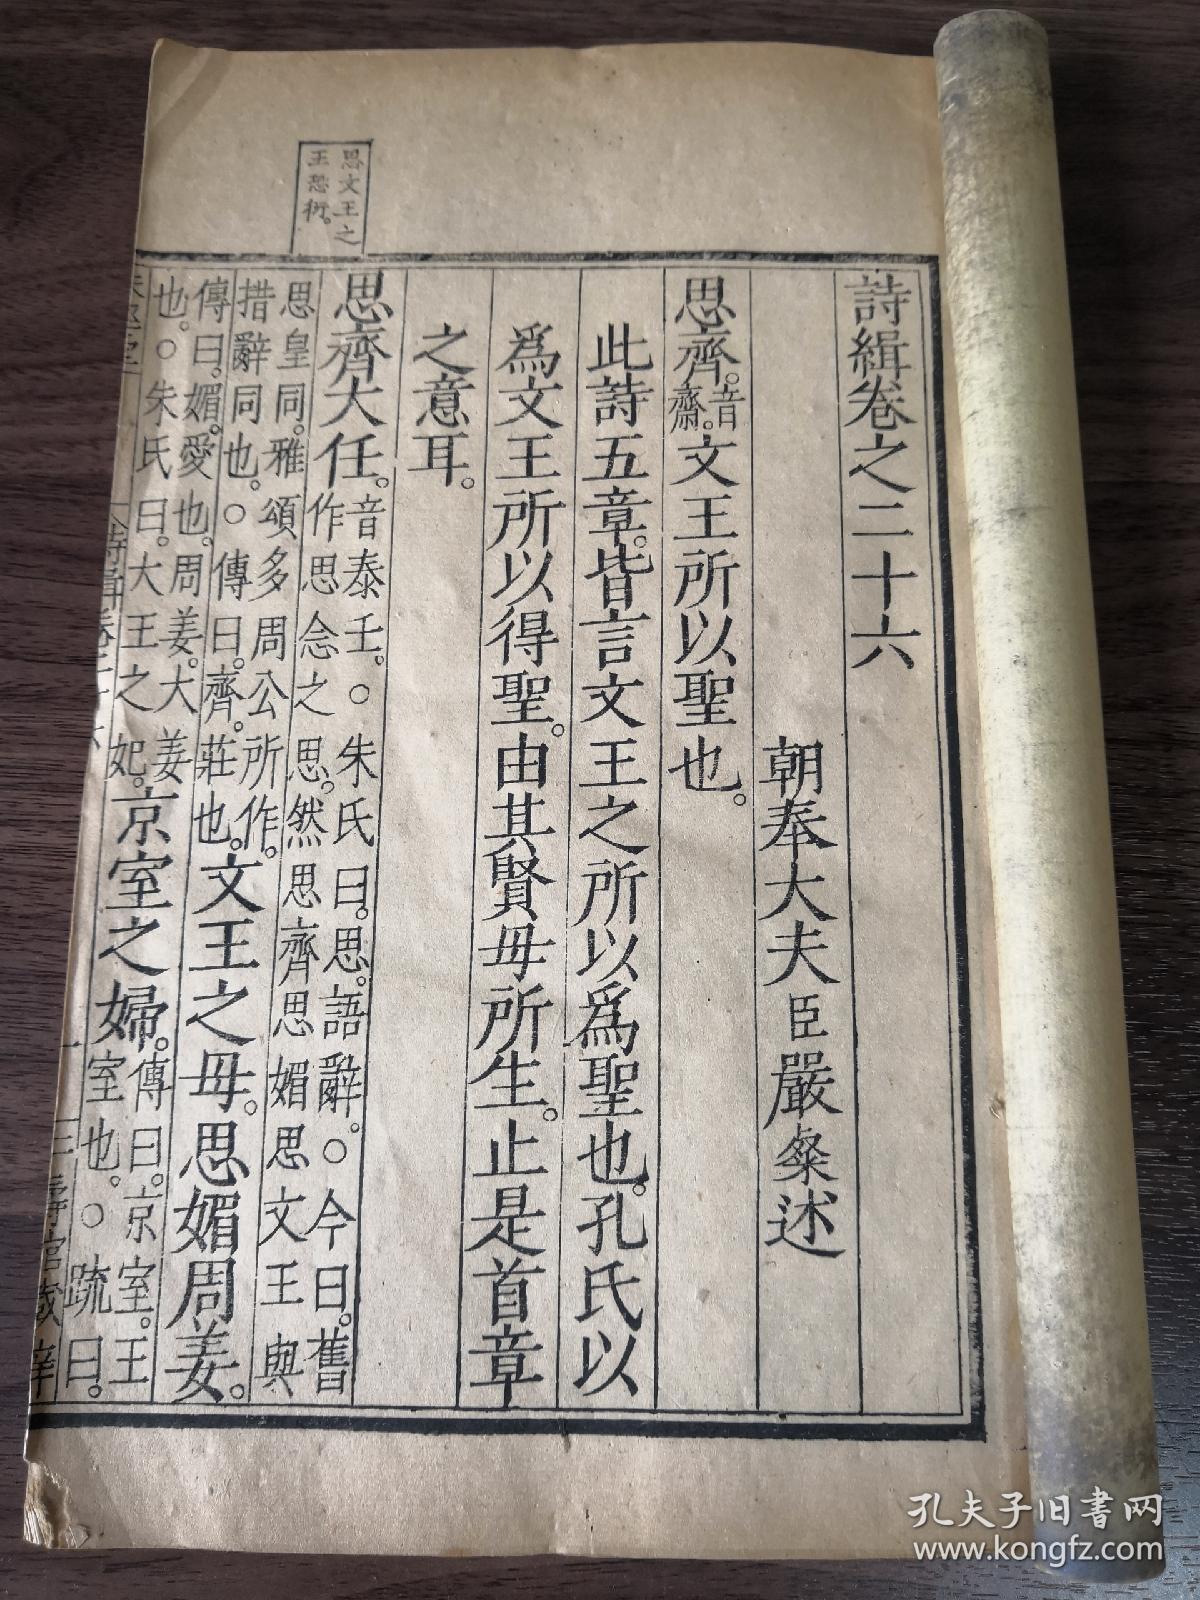 詩緝卷之二十六
朝奉大夫臣嚴粲述
思齊。音齋。文王所以聖也。
此詩五章。皆言文王之所以爲聖也。孔氏以
爲文王所以得聖。由其賢母所生。止是首章
之意耳。
思文王之
王恐衍。
思齊大任。音泰壬。○朱氏曰。思。語辭。○今曰。舊
作思念之思。然思齊思媚思文王與
思皇同。雅頌多周公所作。
措辭同也。○傳曰。齊。莊也。文王之母。思媚周姜。
傳曰。媚。愛也。周姜。大姜
也。○朱氏曰。大王之妃。京室之婦。傳曰。京室。王
室也。○疏曰。
詩緝卷二十六
一
孔夫子旧书网
www.kongfz.com